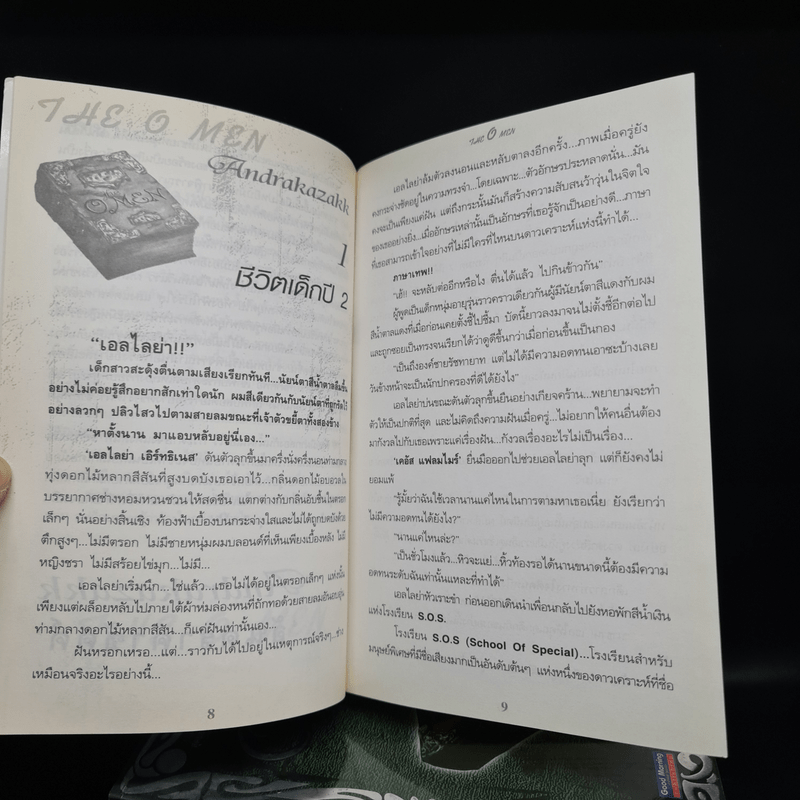 THE O MEN
OMEN
Andrakazakk
1
ชีวิตเด็กปี 2
“เอลไลย่า!!”
เด็กสาวสะดุ้งตื่นตามเสียงเรียกทันที...นัยน์ตาสีน้ำตาลลืมขึ้น
อย่างไม่ค่อยรู้สึกอยากสักเท่าใดนัก ผมสีเดียวกันกับนัยน์ตาที่ถูกรัดไว้
อย่างลวกๆ ปลิวไสวไปตามสายลมขณะที่เจ้าตัวขยี้ตาทั้งสองข้าง
“หาตั้งนาน มาแอบหลับอยู่นี่เอง...”
‘เอลไลย่า เอิร์ทธิเนส’ ดันตัวลุกขึ้นมาครึ่งนั่งครึ่งนอนท่ามกลาง
ทุ่งดอกไม้หลากสีสันที่สูงบดบังเธอเอาไว้...กลิ่นดอกไม้อบอวลใน
บรรยากาศช่างหอมหวนชวนให้สดชื่น แตกต่างกับกลิ่นอับชื้นในตรอก
เล็กๆ นั่นอย่างสิ้นเชิง ท้องฟ้าเบื้องบนกระจ่างใสและไม่ได้ถูกบดบังด้วย
ตึกสูงๆ...ไม่มีตรอก ไม่มีชายหนุ่มผมบลอนด์ที่เห็นเพียงเบื้องหลัง ไม่มี
หญิงชรา ไม่มีสร้อยไข่มุก...ไม่มี...
เอลไลย่าเริ่มนึก...ใช่แล้ว...เธอไม่ได้อยู่ในตรอกเล็กๆ แห่งนั้น
เพียงแต่ผล็อยหลับไปภายใต้ผ้าห่มล่องหนที่ถักทอด้วยสายลมอันอบอุ่น
ท่ามกลางดอกไม้หลากสีสัน...ก็แค่ฝันเท่านั้นเอง...
ฝันหรอกเหรอ...แต่...ราวกับได้ไปอยู่ในเหตุการณ์จริงๆ...ช่าง
เหมือนจริงอะไรอย่างนี้...
8
THE O MEN
เอลไลย่าล้มตัวลงนอนและหลับตาลงอีกครั้ง...ภาพเมื่อครู่ยัง
คงกระจ่างชัดอยู่ในความทรงจำ...โดยเฉพาะ...ตัวอักษรประหลาดนั่น...มัน
คงจะเป็นเพียงแค่ฝัน แต่ถึงกระนั้นมันก็สร้างความสับสนว้าวุ่นในจิตใจ
ของเธออย่างยิ่ง...เมื่ออักษรเหล่านั้นเป็นอักษรที่เธอรู้จักเป็นอย่างดี...ภาษา
ที่เธอสามารถเข้าใจอย่างที่ไม่มีใครที่ไหนบนดาวเคราะห์แห่งนี้ทำได้...
ภาษาเทพ!!
“เฮ้!! จะหลับต่ออีกหรือไง ตื่นได้แล้ว ไปกินข้าวกัน”
ผู้พูดเป็นเด็กหนุ่มอายุรุ่นราวคราวเดียวกันผู้มีนัยน์ตาสีแดงกับผม
สีน้ำตาลแดงที่เมื่อก่อนเคยตั้งชี้ไปชี้มา บัดนี้ยาวลงมาจนไม่ตั้งชี้อีกต่อไป
และถูกซอยเป็นทรงจนเรียกได้ว่าดูดีขึ้นกว่าเมื่อก่อนขึ้นเป็นกอง
“เป็นถึงองค์ชายรัชทายาท แต่ไม่ได้มีความอดทนเอาซะบ้างเลย
วันข้างหน้าจะเป็นนักปกครองที่ดีได้ยังไง”
เอลไลย่าบ่นขณะดันตัวลุกขึ้นยืนอย่างเกียจคร้าน...พยายามจะทำ
ตัวให้เป็นปกติที่สุด และไม่คิดถึงความฝันเมื่อครู่...ไม่อยากให้คนอื่นต้อง
มากังวลไปกับเธอเพราะแค่เรื่องฝัน...กังวลเรื่องอะไรไม่เป็นเรื่อง...
‘เคอัส แฟลมไมร์’ ยื่นมือออกไปช่วยเอลไลย่าลุก แต่ก็ยังคงไม่
ยอมแพ้
“รู้มั้ยว่าฉันใช้เวลานานแค่ไหนในการตามหาเธอเนี่ย ยังเรียกว่า
ไม่มีความอดทนได้ยังไง?”
“นานแค่ไหนล่ะ?”
“เป็นชั่วโมงแล้ว...หิวจะแย่...หิ้วท้องรอได้นานขนาดนี้ต้องมีความ
อดทนระดับฉันเท่านั้นแหละที่ทำได้”
เอลไลย่าหัวเราะขำ ก่อนออกเดินนำเพื่อนกลับไปยังหอพักสีน้ำเงิน
แห่งโรงเรียน S.O.S.
โรงเรียน S.O.S (School Of Special)...โรงเรียนสำหรับ
มนุษย์พิเศษที่มีชื่อเสียงมากเป็นอันดับต้นๆ แห่งหนึ่งของดาวเคราะห์ที่ชื่อ
9
Good Morning